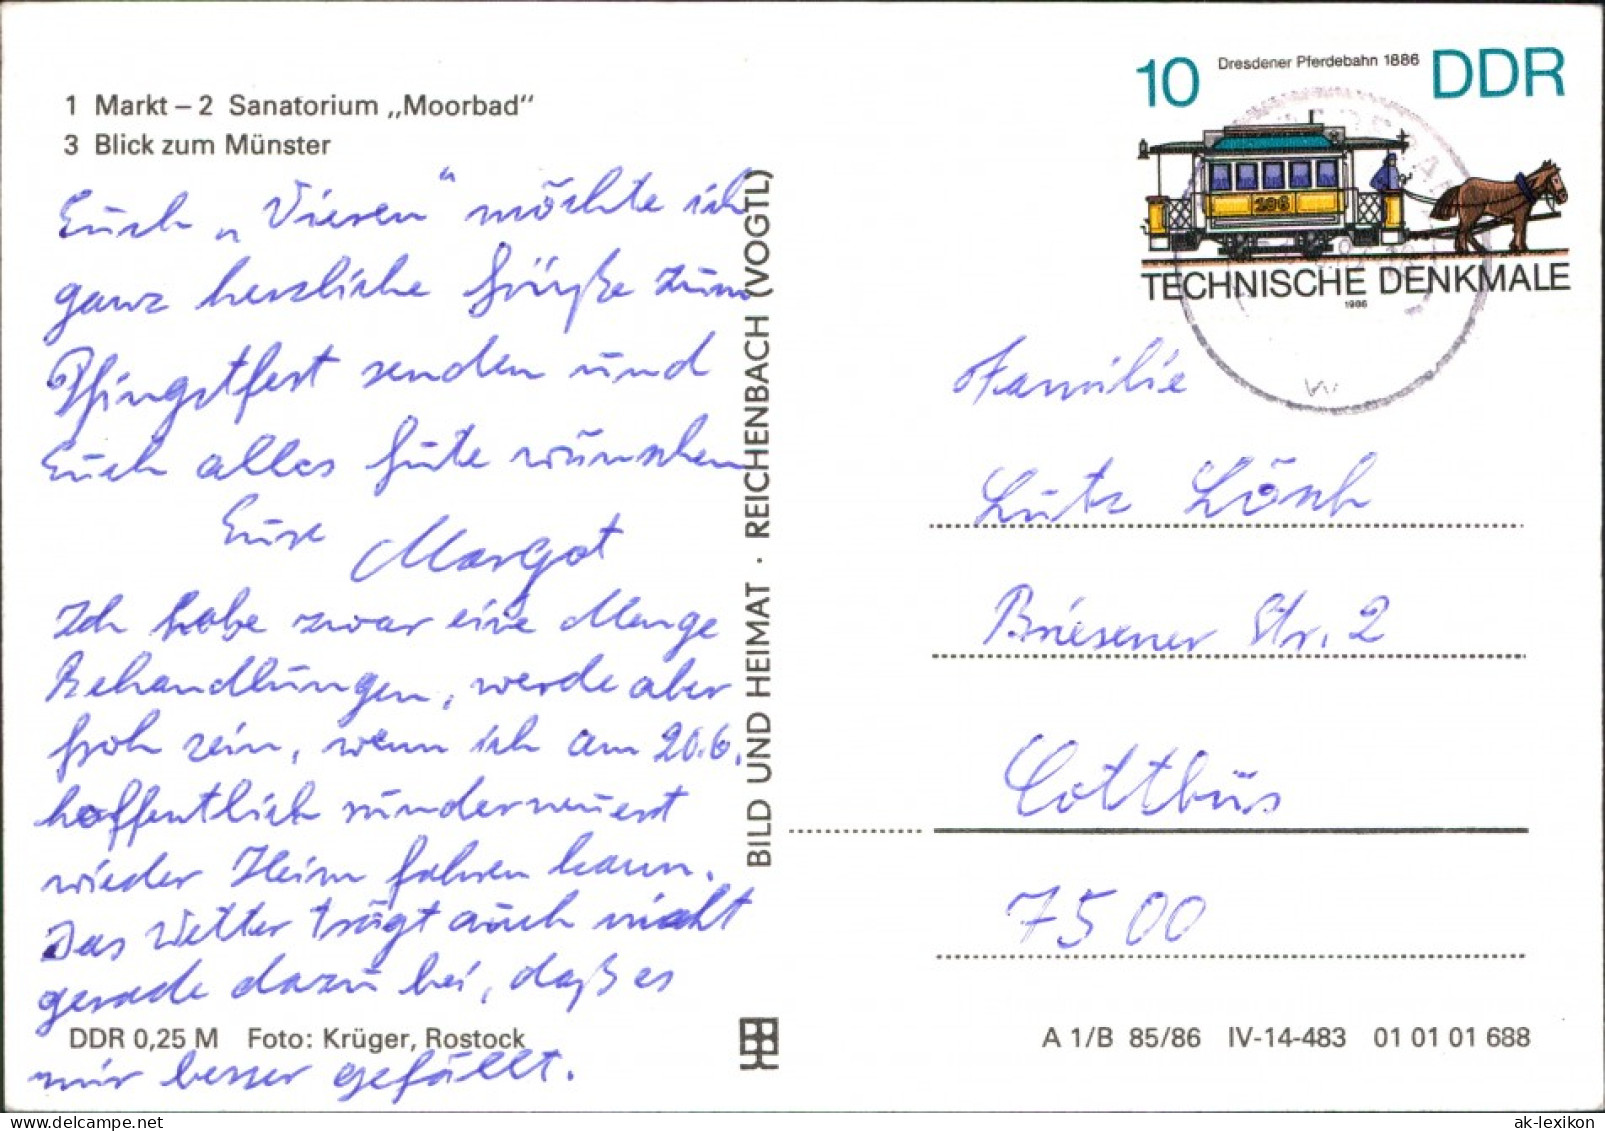 1 Markt – 2 Sanatorium „Moorbad“
3 Blick zum Münster
Euch „Vieren“ möchte ich
ganz herzliche Grüße zum
Pfingstfest senden und
Euch alles Gute wünschen
Eure Margot
Ich habe zwar eine Menge
Behandlungen, werde aber
froh sein, wenn ich am 20.6.
hoffentlich runderneuert
wieder Heim fahren kann.
Das Wetter trägt auch nicht
gerade dazu bei, daß es
DDR 0,25 M Foto: Krüger, Rostock
mir besser gefällt.
BILD UND HEIMAT · REICHENBACH (VOGTL)
10 Dresdener Pferdebahn 1886 DDR
286
TECHNISCHE DENKMALE
1986
Familie
Lutz
Briesener Str. 2
Cottbus
7500
A 1/B 85/86 IV-14-483 01 01 01 688
ak-lexikon